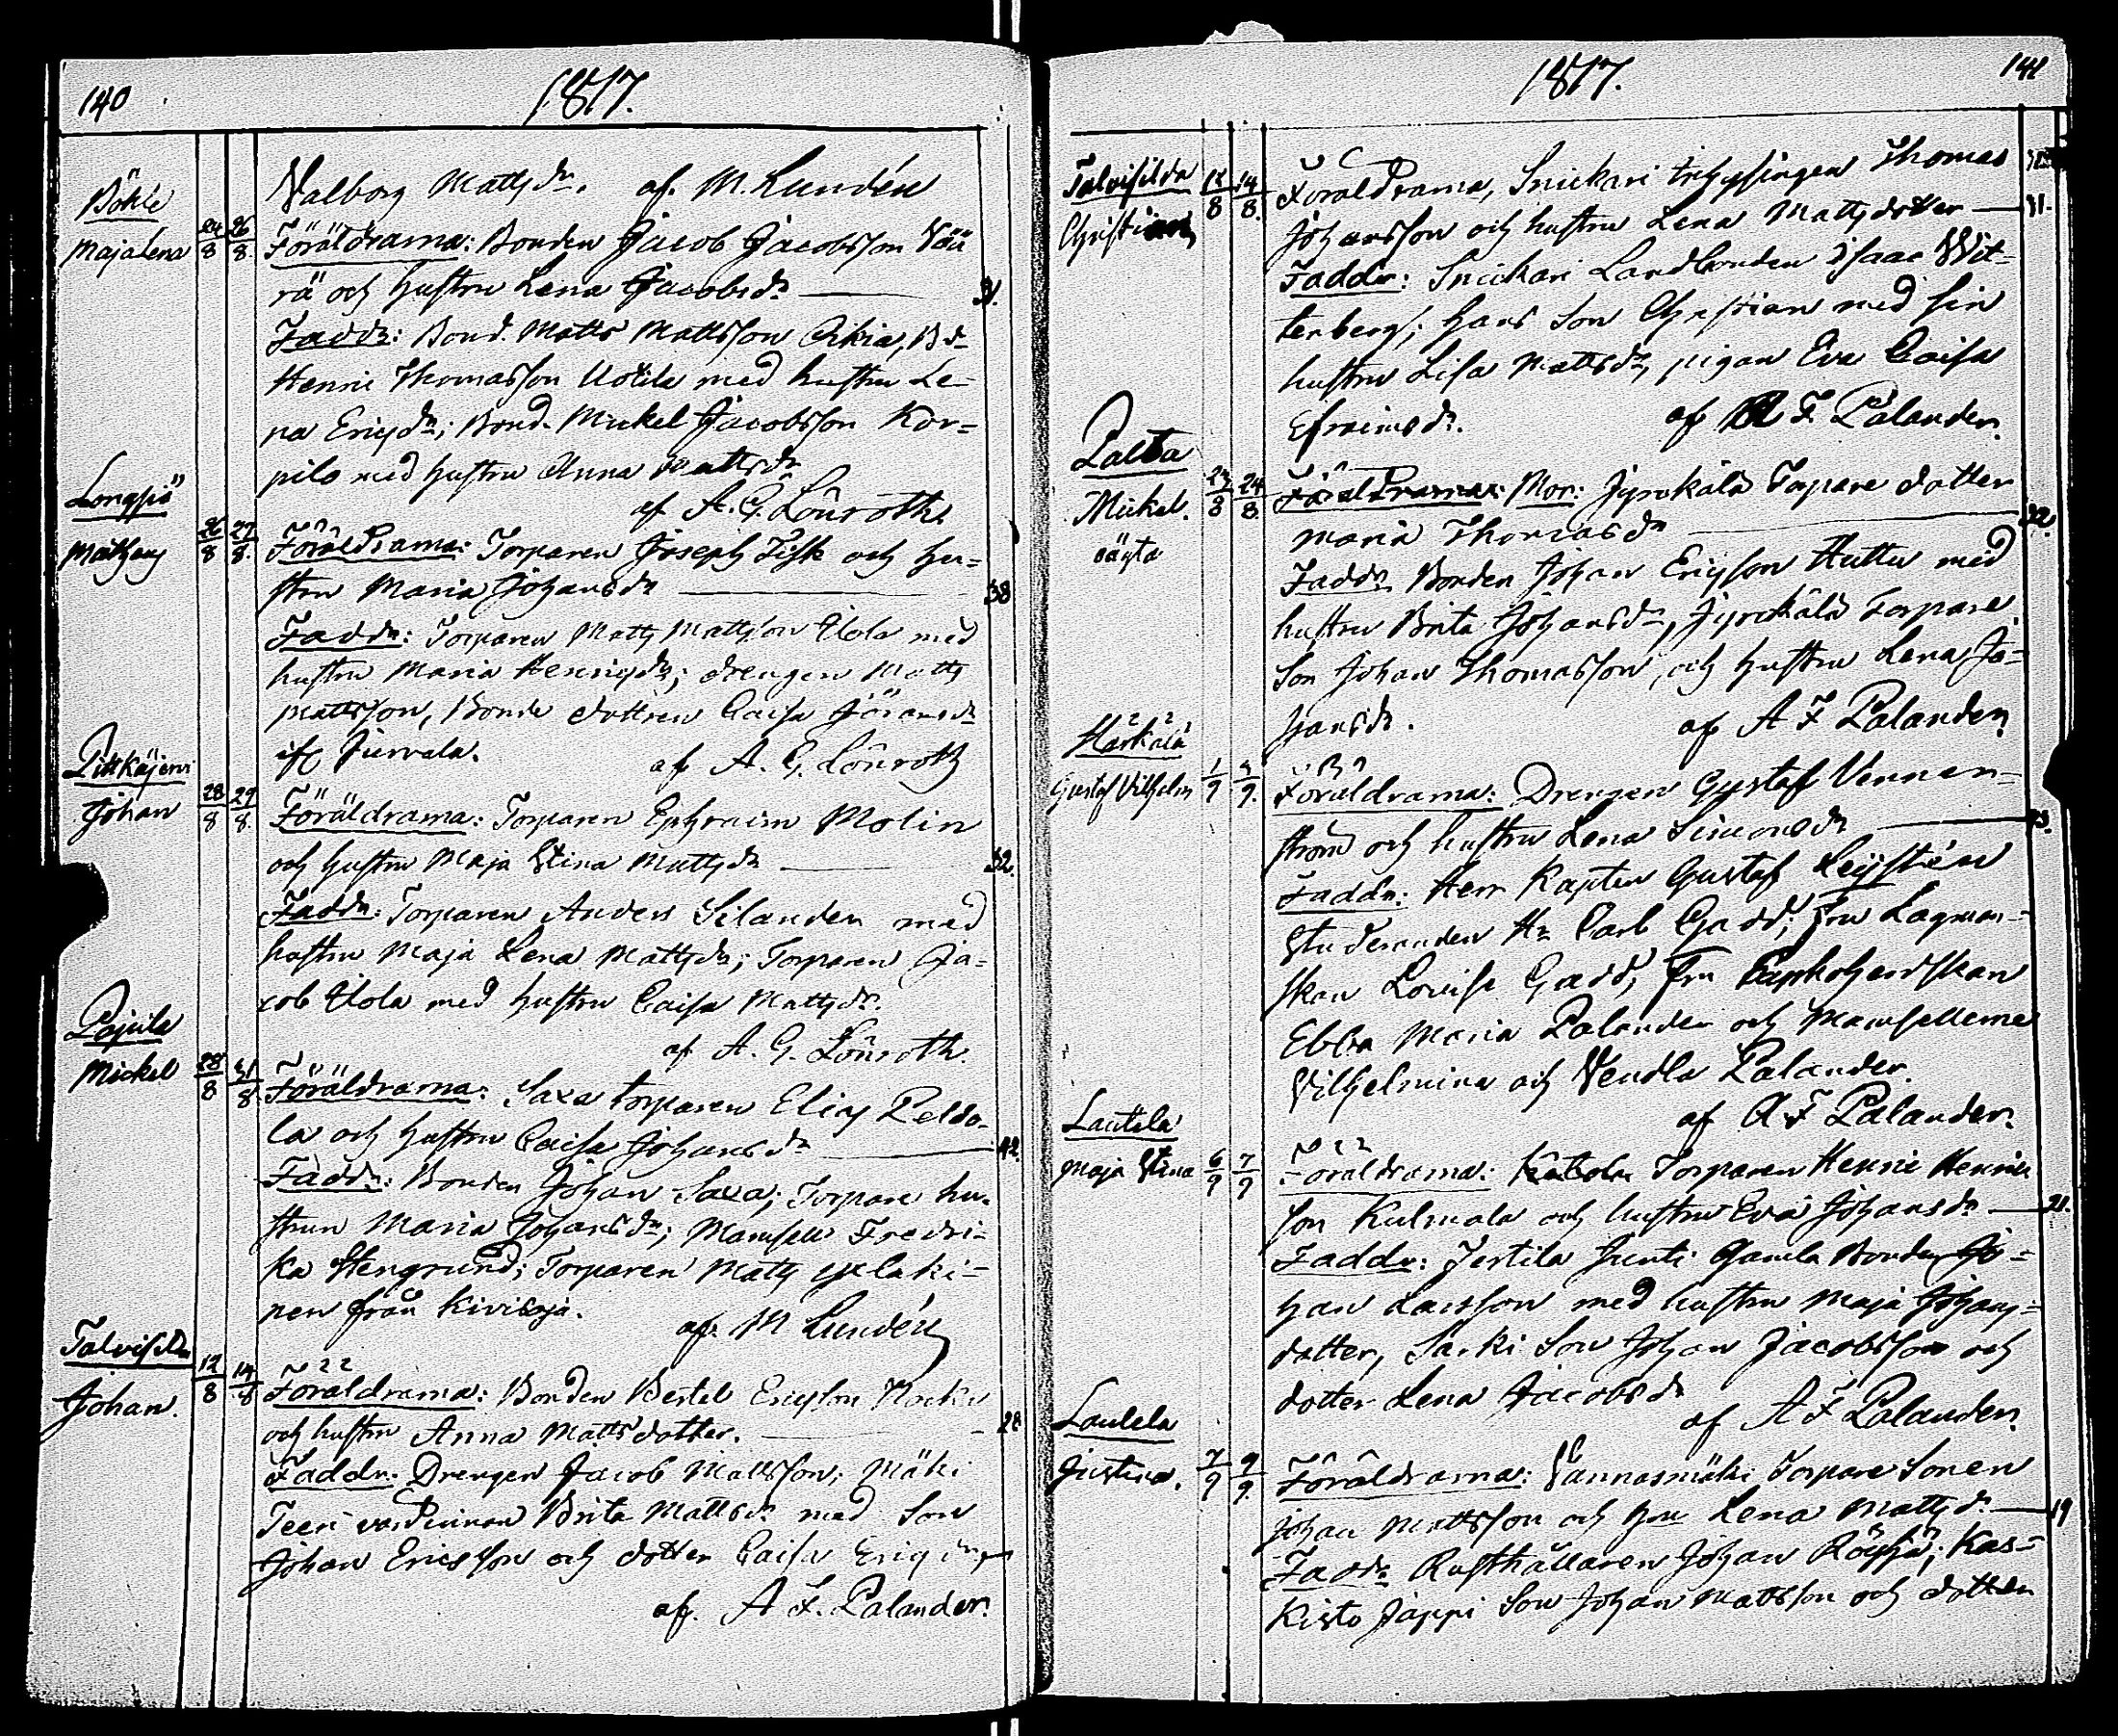 140
1817.
Valborg Mattsdr. af M. Lundén
Böhle
Maja Lena 24/8 26/8
Föräldrarna: Bonden Jacob Jacobsson
rä och hustru Lena Jacobsdr 31.
Faddr: Bond. Matts Mattsson Arkia, Bd
Henric Thomasson Uotila med hustru Le-
na Ericsdr; Bond. Mickel Jacobsson Kor-
pilo med hustru Anna Mattsdr
af A. G. Lönroth.
Longsiö
Mathias 26/8 27/8.
Föräldrarna: Torparen Joseph Fisk och hu-
stru Maria Johansdr 38
Faddr: Torparen Matts Mattsson Uola med
hustru Maria Henricsdr; drengen Matts
Mattsson, Bonde dottren Caisa Göransdr
if Jurvala. af A. G. Lönroth
Pitkäjervi
Johan 28/8 29/8.
Föräldrarna: Torparen Ephraim Molin
och hustru Maja Stina Mattsdr 32.
Faddr: Torparen Anders Silander med
hustru Maja Lena Mattsdr; Torparen Ja-
cob Uola med hustru Caisa Mattsdr.
af A. G. Lönroth.
Pajula
Mickel 28/8 31/8
Föräldrarna: Saxa torparen Elias Peldo-
la och hustru Caisa Johansdr 42.
Faddr: Bonden Johan Saxa; Torpare hu-
strun Maria Johansdr; Mamsell Fredri-
ka Stengrund; Torparen Matts
nen från Kivioja.
af M Lundén
Talvisilda
Johan. 12/8 14/8
Föräldrarna: Bonden Bertel Ericsson
och hustru Anna Mattsdotter. 28
Faddr: Drengen Jacob Mattsson; Mäki
Teeri värdinnan Brita Mattsdr med Son
Johan Ericsson och dotter Caisa Ericsdr
af. A F. Palander.
141
1817.
Talvisilda
Christian 12/8 14/8.
Föräldrarna, Snickari inhysingen Thomas
Johansson och hustru Lena Mattsdotter 31.
Faddr: Snickari Landbonden Isaac Wit-
terberg; hans Son Christian med sin
hustru Lisa Mattsdr, pigan Eva Caisa
Efraimsdr. af A F Palander.
Palta
Mickel. 23/8 24/8.
oägta
Föräldrarna: Mor: Jyrckälä Torpare dotter
Maria Thomasdr 32.
Faddr Bonden Johan Ericsson Huttu med
hustru Brita Johansdr, Jyrckälä Torpare
Son Johan Thomasson, och hustru Lena Jo-
hansdr. af A F Palander
Härkälä
Gustaf Vilhelm 1/9 3/9.
Föräldrarna: Drengen Gustaf Vennen-
ström och hustru Lena Simonsdr 23.
Faddr: Herr Kapten Gustaf Leijstén
Studeranden Hr Carl Gadd; Fru Lagman-
skan Lovisa Gadd, Fru
Ebba Maria Palander och Mamsellerne
Vilhelmina och Vendla Palander.
af A F Palander.
Lautela
Maja Stina 6/9 7/9
Föräldrarna: Torparen Henric Henrics
son Kulmala och hustru Eva Johansdr 21.
Faddr: Jertila Junti Gamla Bonden Jo-
han Larsson med hustru Maja Johans-
dotter, Särki Son Johan Jacobsson och
dotter Lena Jacobsdr
af A F Palander.
Lautela
Justina. 7/9 9/9.
Föräldrarna: Vannasmäki Torpare Sonen
Johan Mattsson och hru Lena Mattsdr 19
Faddr Rusthållaren Johan Röyhä; Kas-
kisto Jäppi Son Johan Mattsson och dotter